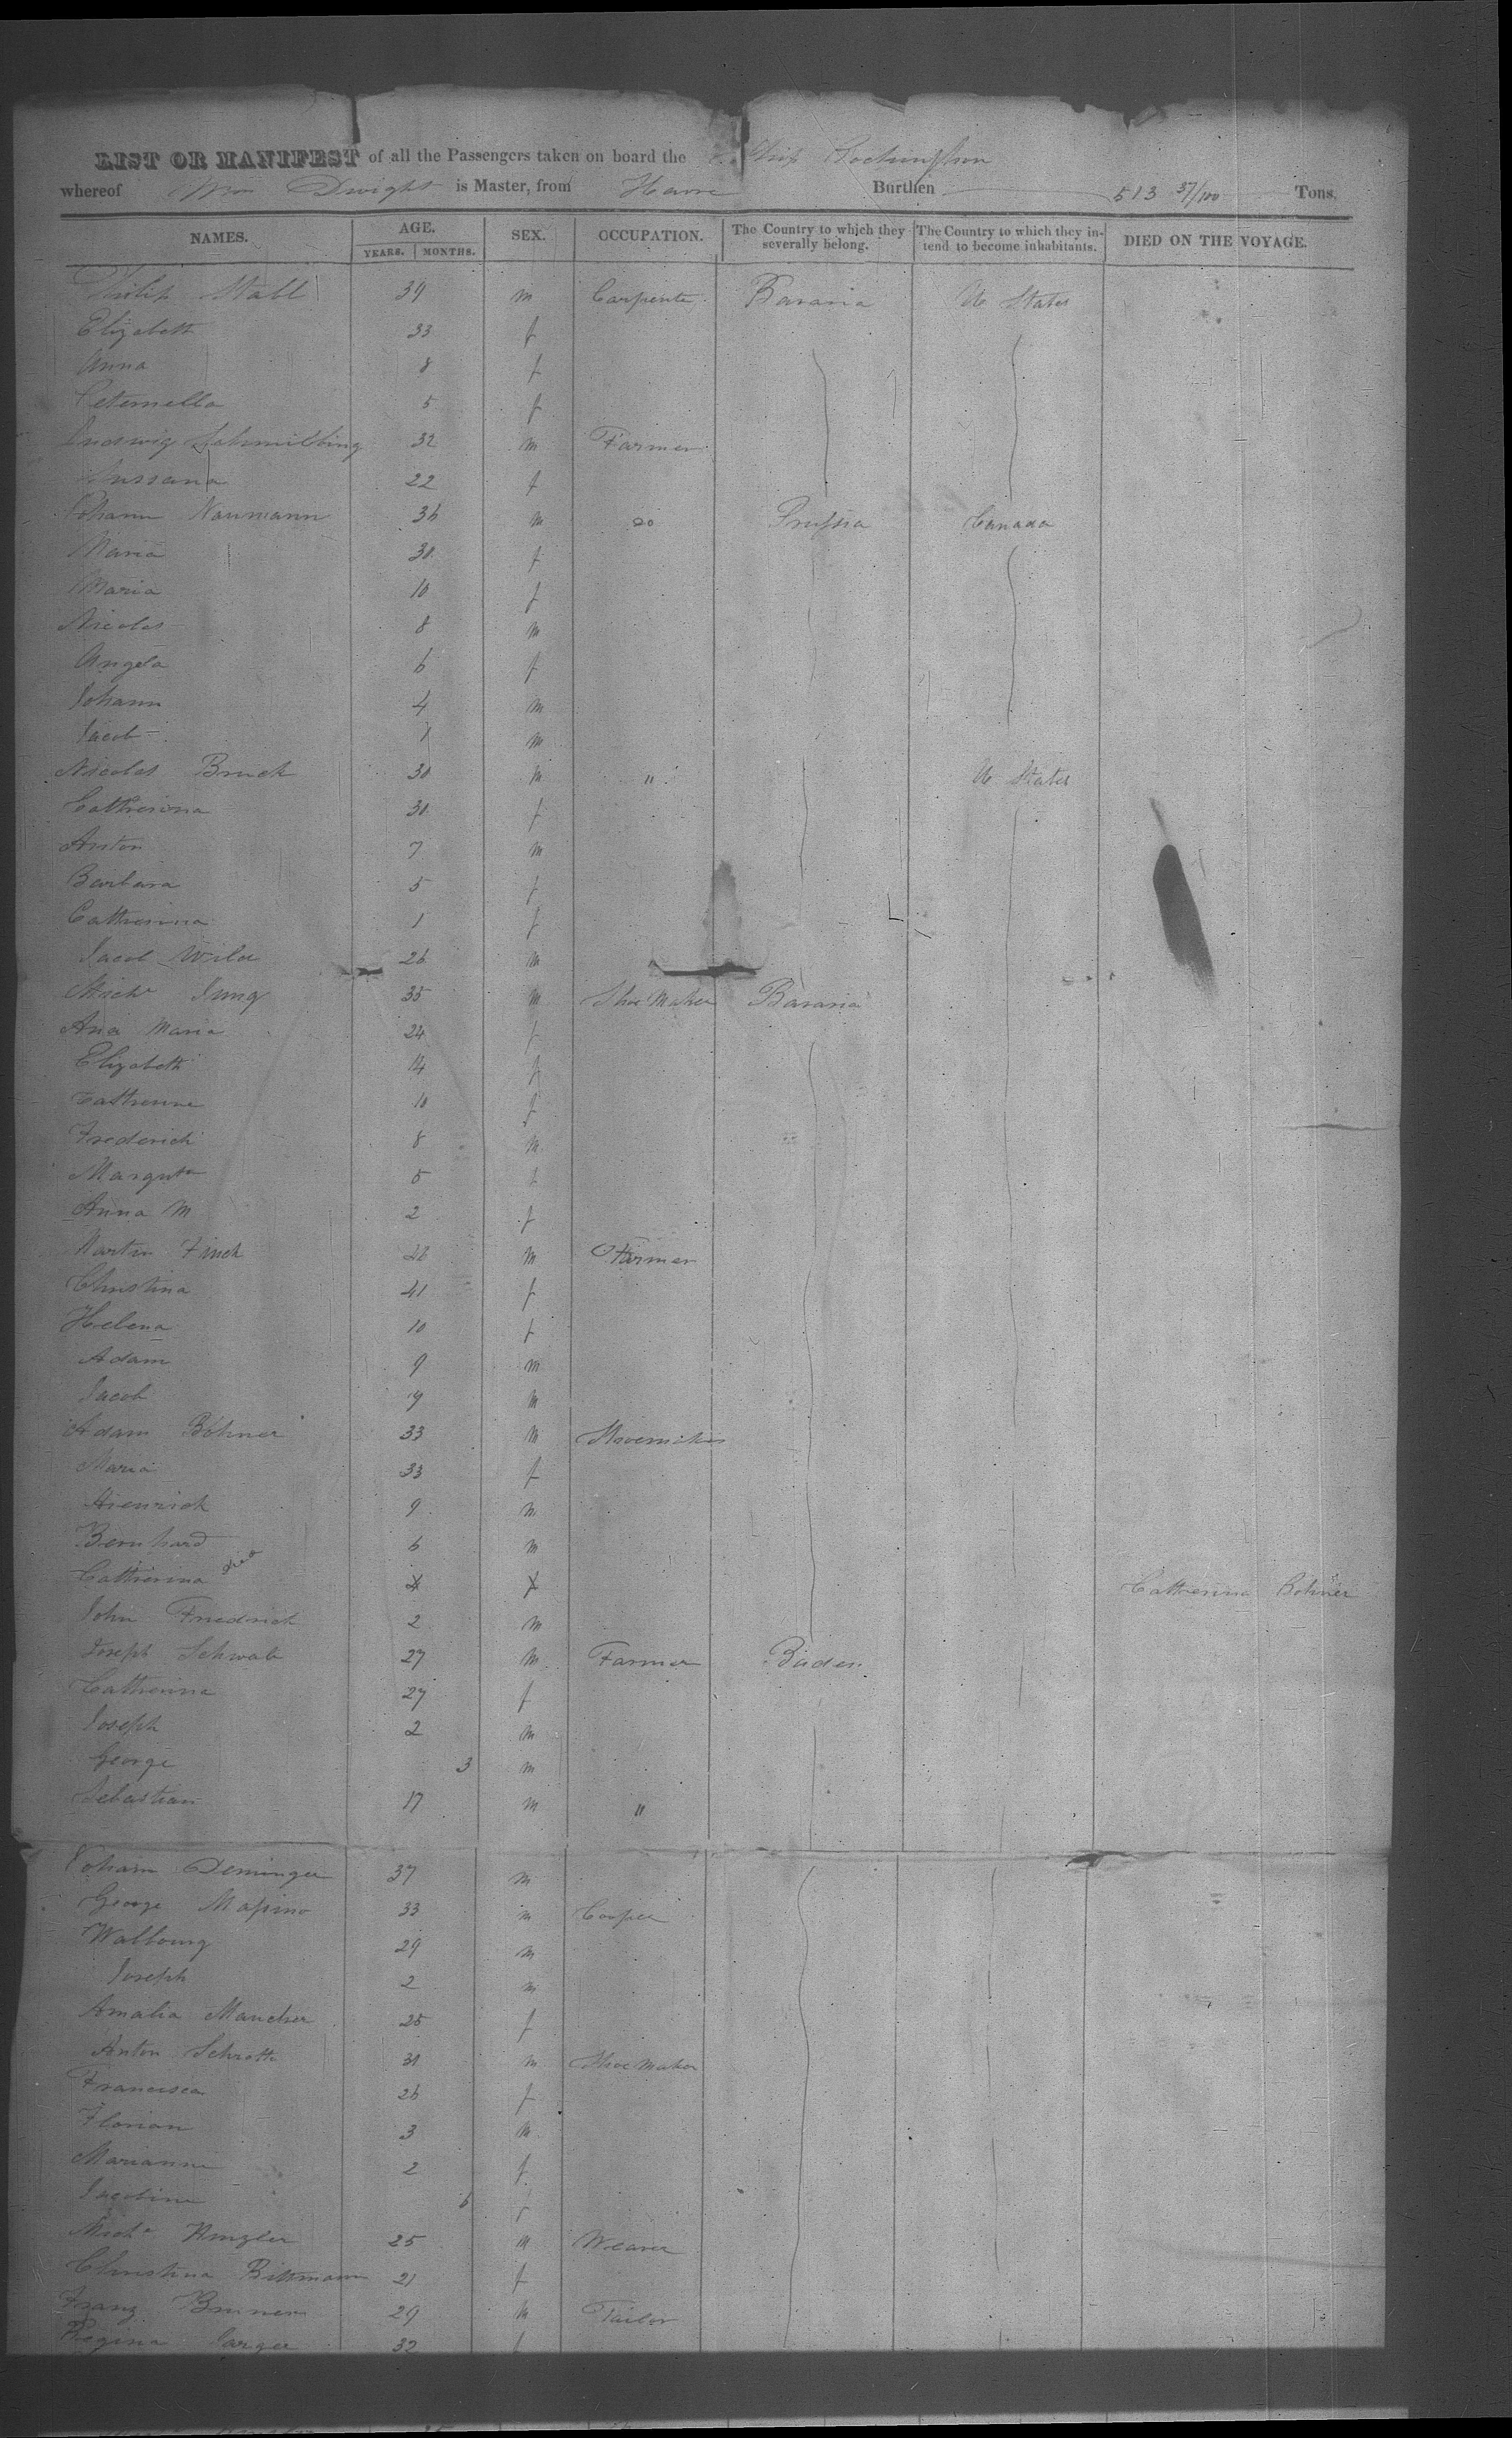 LIST OR MANIFEST of all the Passengers taken on board the Ship
whereof Wm Dwight is Master, from Havre Burthen 513 37/100 Tons.
NAMES. AGE. YEARS. MONTHS. SEX. OCCUPATION. The Country to which they severally belong. The Country to which they intend to become inhabitants. DIED ON THE VOYAGE.
Philip Stabl 39 m Carpenter Bavaria U States
Elizabeth 33 f
Anna 8 f
Petemella 5 f
Ludwig 32 m Farmer
Sussana 22 f
Johann Naumann 36 m do Prussia Canada
Maria 30 f
Maria 10 f
Nicolas 8 m
Angela 6 f
Johann 4 m
Jacob 1 m
Nicolas Bruck 30 m " U States
Catherina 30 f
Anton 7 m
Barbara 5 f
Catherina 1 f
Jacob Wild 26 m
Michl Jung 35 m Shoe Maker Bavaria
Ana Maria 24 f
Elizabeth 14 f
Catherine 10 f
Frederich 8 m
Margrta 5 f
Anna M 2 f
Martin Finck m Farmer
Christina 41 f
Helena 10 f
Adam 9 m
Jacob m
Adam Böhner 33 m Shoemaker
Maria 33 f
Hienrich 9 m
Bernhard 6 m
Catherina died 4 f Catherina Böhner
John Friedrich 2 m
Joseph Schwab 27 m Farmer Baden
Catherine 27 f
Joseph 2 m
George 3 m
Sebastian 17 m "
Johann Deminger 37 m
George Massino 33 m Cooper
Walbourg 29 m
Joseph 2 m
Amalia Mancher 25 f
Anton Schrott 31 m Shoe Maker
Francisca 26 f
Florian 3 m
Marianne 2 f
Jacobine 6 f
Michl 25 m Weaver
Christina Bittmann 21 f
Franz Brunner 29 m Tailor
Regina 32 f